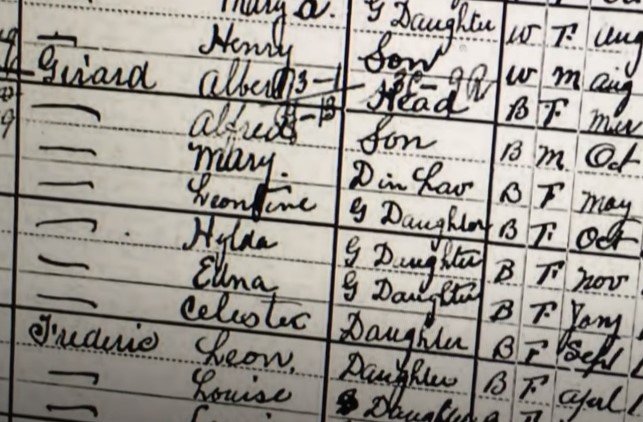 Mary A. G Daughter W F Aug
— Henry Son W M Aug
Girard Albert 3-1 Head B F Mar
— Alfred 3-13 Son B M Oct
— Mary. D in Law B F May
— Leontine G Daughter B F Oct
— Hylda G Daughter B F Nov
— Edna G Daughter B F Jany
— Celestec Daughter B F Sept
Frederic Leon. Daughter B F April
— Louise Daughter